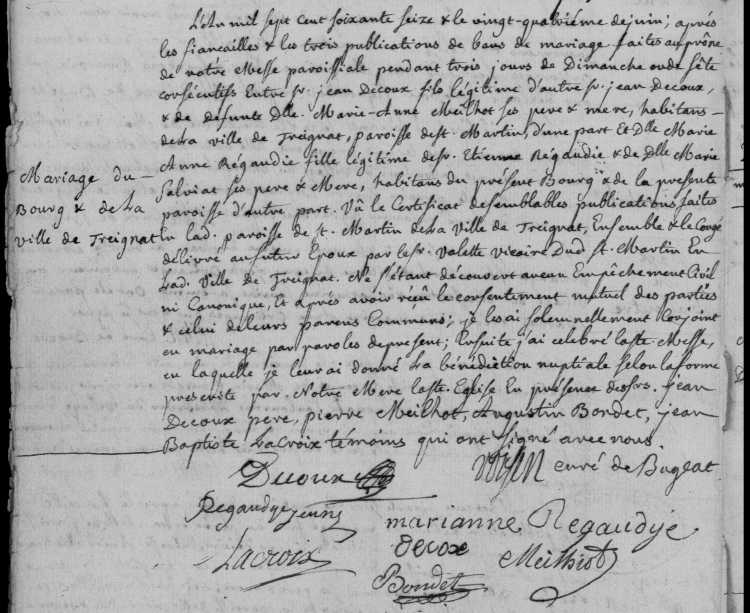 L'An mil sept cent soixante seize & le vingt-quatrième de juin; après
les fiancailles & les trois publications de bans de mariage faites au prône
de notre Messe paroissiale pendant trois jours de Dimanche ou de fête
consécutifs Entre sr. jean Decoux fils légitime d'autre sr. jean Decoux,
& de defunte Dlle. Marie-Anne Meilhot ses pere & mere, habitans
de la ville de Treignat, paroisse de st. Martin, d'une part Et Dlle Marie
Anne Régaudie fille légitime de sr. Etienne Régaudie & de Dlle Marie
Salviat ses pere & Mere, habitans du présent Bourg & de la presente
paroisse d'autre part. Vû le Certificat de semblables publications faites
En lad. paroisse de st. Martin de la Ville de Treignat, Ensemble & le Congé
délivré au futur Epoux par le sr. Valette Vicaire Dud. st. Martin En
Lad. Ville de Treignat. Ne s'étant découvert aucun Empêchement Civil
ni Canonique Et après avoir réçû le consentement mutuel des parties
& celui de leurs parens Communs; je les ai solemnellement Conjoint
en mariage par paroles de present; Ensuite j'ai celebré la ste. Messe,
en laquelle je leur ai donné la bénédiction nuptiale selon la forme
prescrite par Notre Mere la ste. Eglise En présence des srs. jean
Decoux pere, pierre Meilhot, Augustin Bordet, jean
Baptiste Lacroix témoins qui ont signé avec nous.
Mariage du
Bourg & de La
ville de Treignat
Decoux
curé de Bugeat
Regaudye
marianne Regaudye
Lacroix
decox
Meilhiot
Bordet